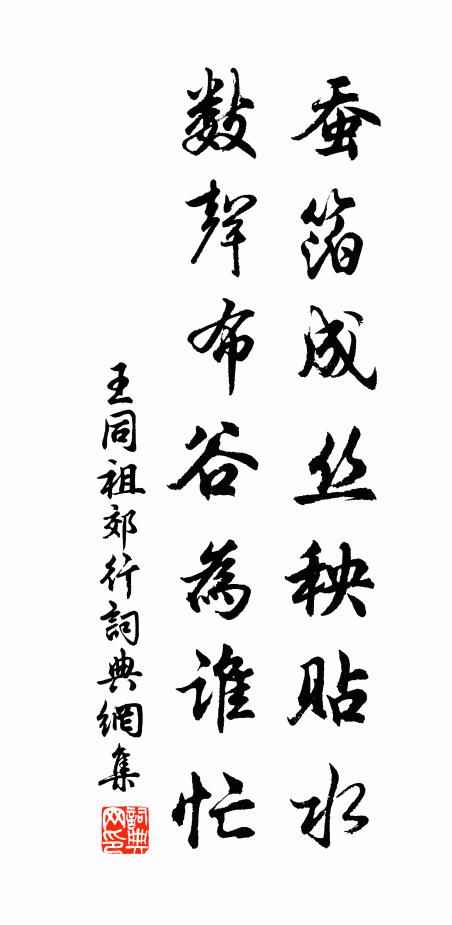 蚕箔成丝秧贴水
数聲布谷為谁忙
王同祖郊行詞典網集
詞典网印